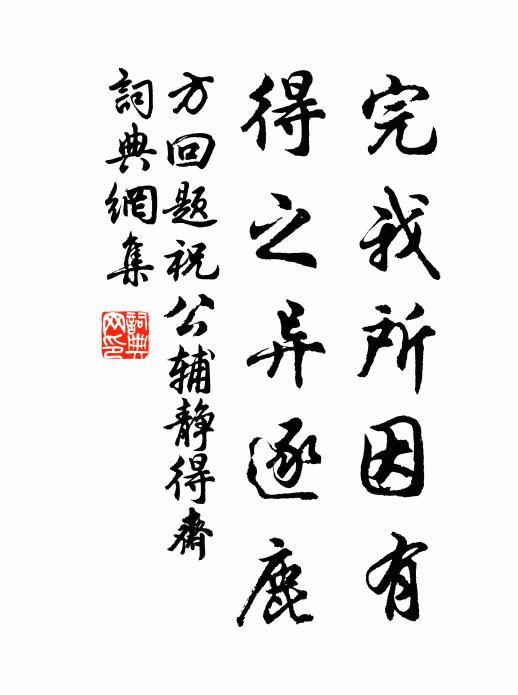 完我所因有
得之异逐鹿
方回题祝公辅静得斋
詞典網集
詞典网印